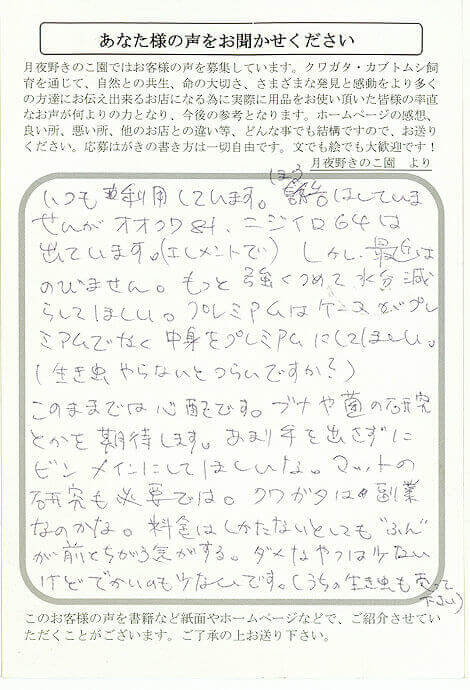 あなた様の声をお聞かせください
月夜野きのこ園ではお客様の声を募集しています。クワガタ・カブトムシ飼
育を通じて、自然との共生、命の大切さ、さまざまな発見と感動をより多く
の方達にお伝え出来るお店になる為に実際に用品をお使い頂いた皆様の率直
なお声が何よりの力となり、今後の参考となります。ホームページの感想、
良い所、悪い所、他のお店との違い等、どんな事でも結構ですので、お送り
ください。応募はがきの書き方は一切自由です。文でも絵でも大歓迎です！
月夜野きのこ園　より
いつも利用しています。報告はしていま
せんがオオクワ84、ニジイロ64は
出ています。(エレメントで)しかし、最近は
のびません。もっと強くつめて水分減
らしてほしい。プレミアムはケースがプレ
ミアムでなく中身をプレミアムにしてほしい。
(生き虫やらないとつらいですか？)
このままでは心配です。ブナや菌の研究
とかを期待します。あまり手を出さずに
ビンメインにしてほしいな。マットの
研究も必要では。クワガタは副業
なのかな。料金はしかたないとしても“ふん”
が前とちがう気がする。ダメなやつは少ない
けどでかいのも少ないです。(うちの生き虫も売って
下さい)
このお客様の声を書籍など紙面やホームページなどで、ご紹介させてい
ただくことがございます。ご了承の上お送り下さい。